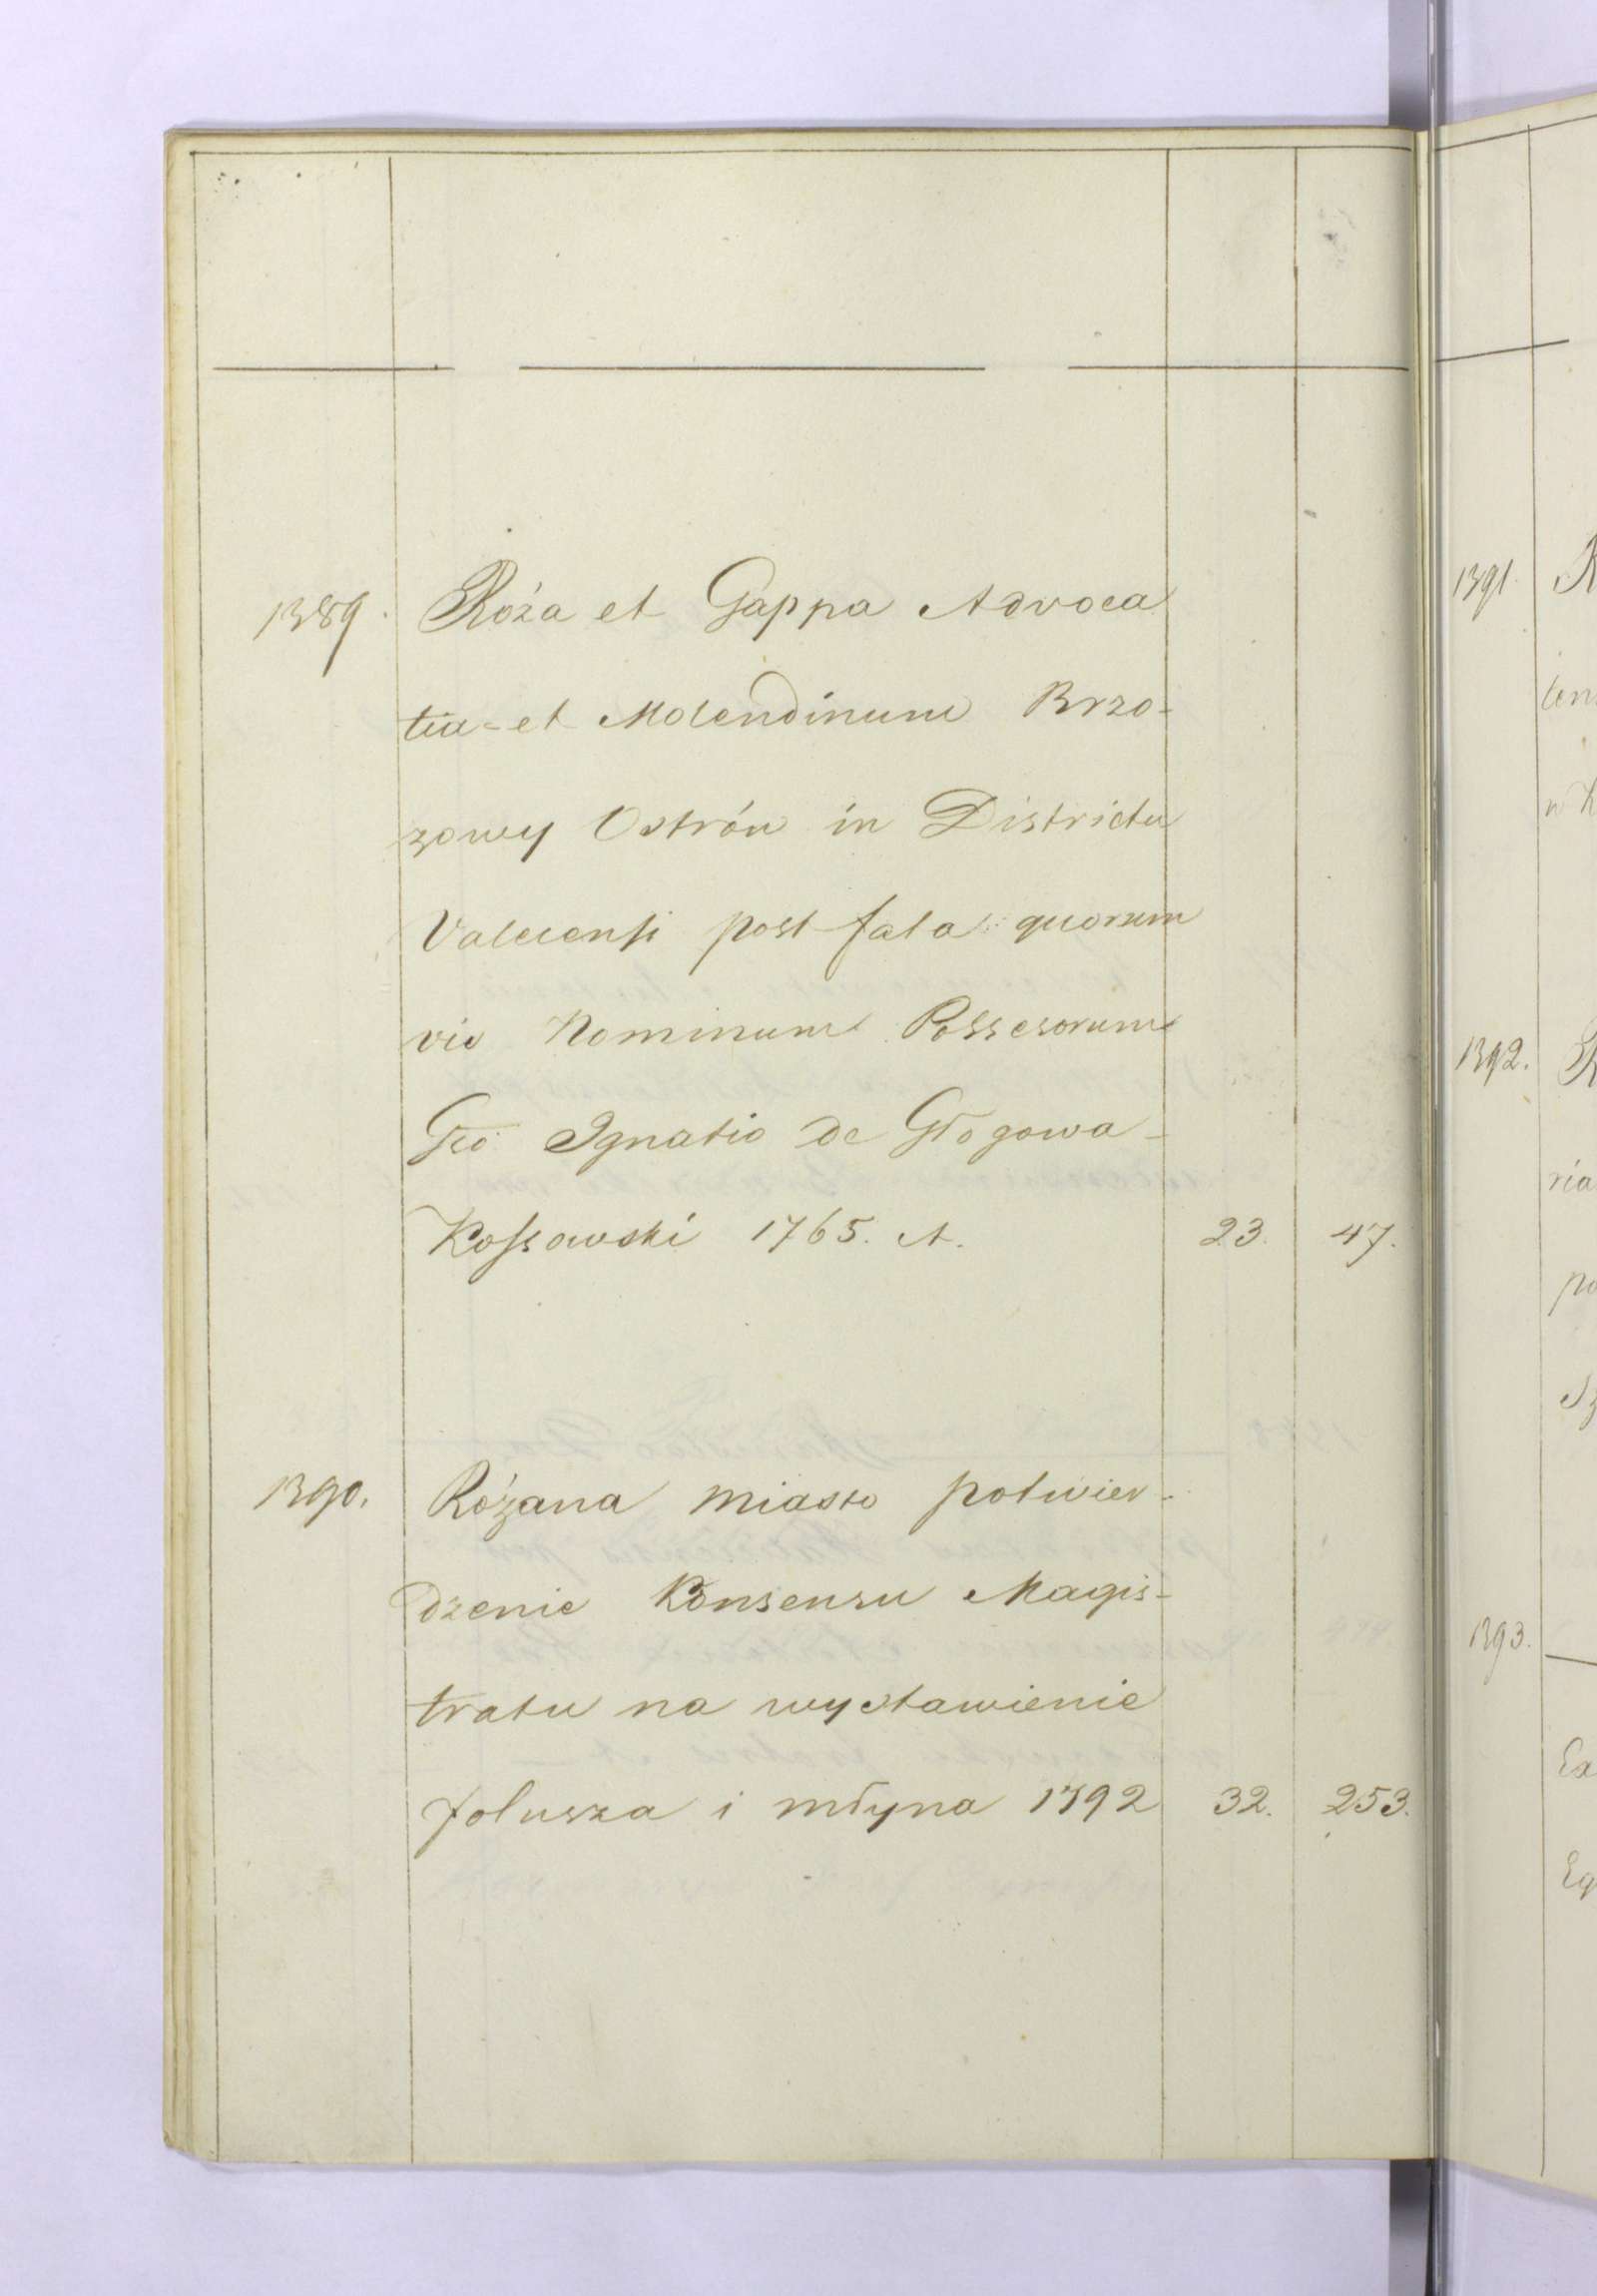 1389. Róża et Gappa Advoca
tia = et Molendinum Brzo-
zowy Ostrów in Districtu
Valecensi post fata quorum
vis Nominum Possesorum
Gso Ignatio de Głogowa-
Kossowski 1765. A. 23. 47.
1390. Różana miasto potwier-
dzenie Konsensu Magis-
tratu na wystawienie
folusza i młyna 1792 32. 253.
1391.
1392.
ria
1393.